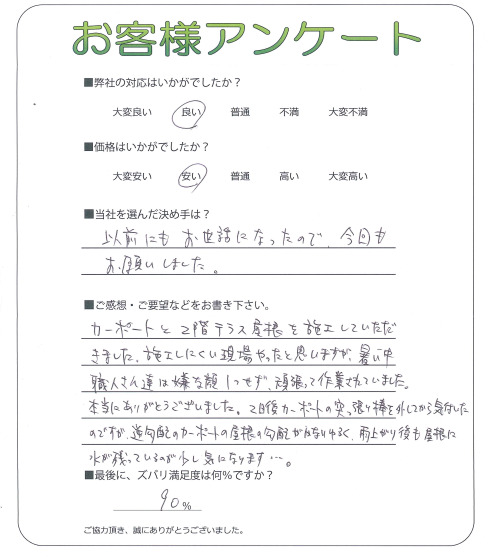 お客様アンケート
■弊社の対応はいかがでしたか?
大変良い 良い 普通 不満 大変不満
■価格はいかがでしたか?
大変安い 安い 普通 高い 大変高い
■当社を選んだ決め手は?
以前にもお世話になったので、今回も
お願いしました。
■ご感想・ご要望などをお書き下さい。
カーポートと2階テラス屋根を施工していただ
きました。施工しにくい現場やったと思いますが、暑い中
職人さん達は嫌な顔1つせず、頑張って作業されていました。
本当にありがとうございました。2日後カーポートの突っ張り棒を外してから気付いた
のですが、逆勾配のカーポートの屋根の勾配がかなりゆるく、雨上がり後も屋根に
水が残っているのが少し気になります…。
■最後に、ズバリ満足度は何%ですか?
90%
ご協力頂き、誠にありがとうございました。